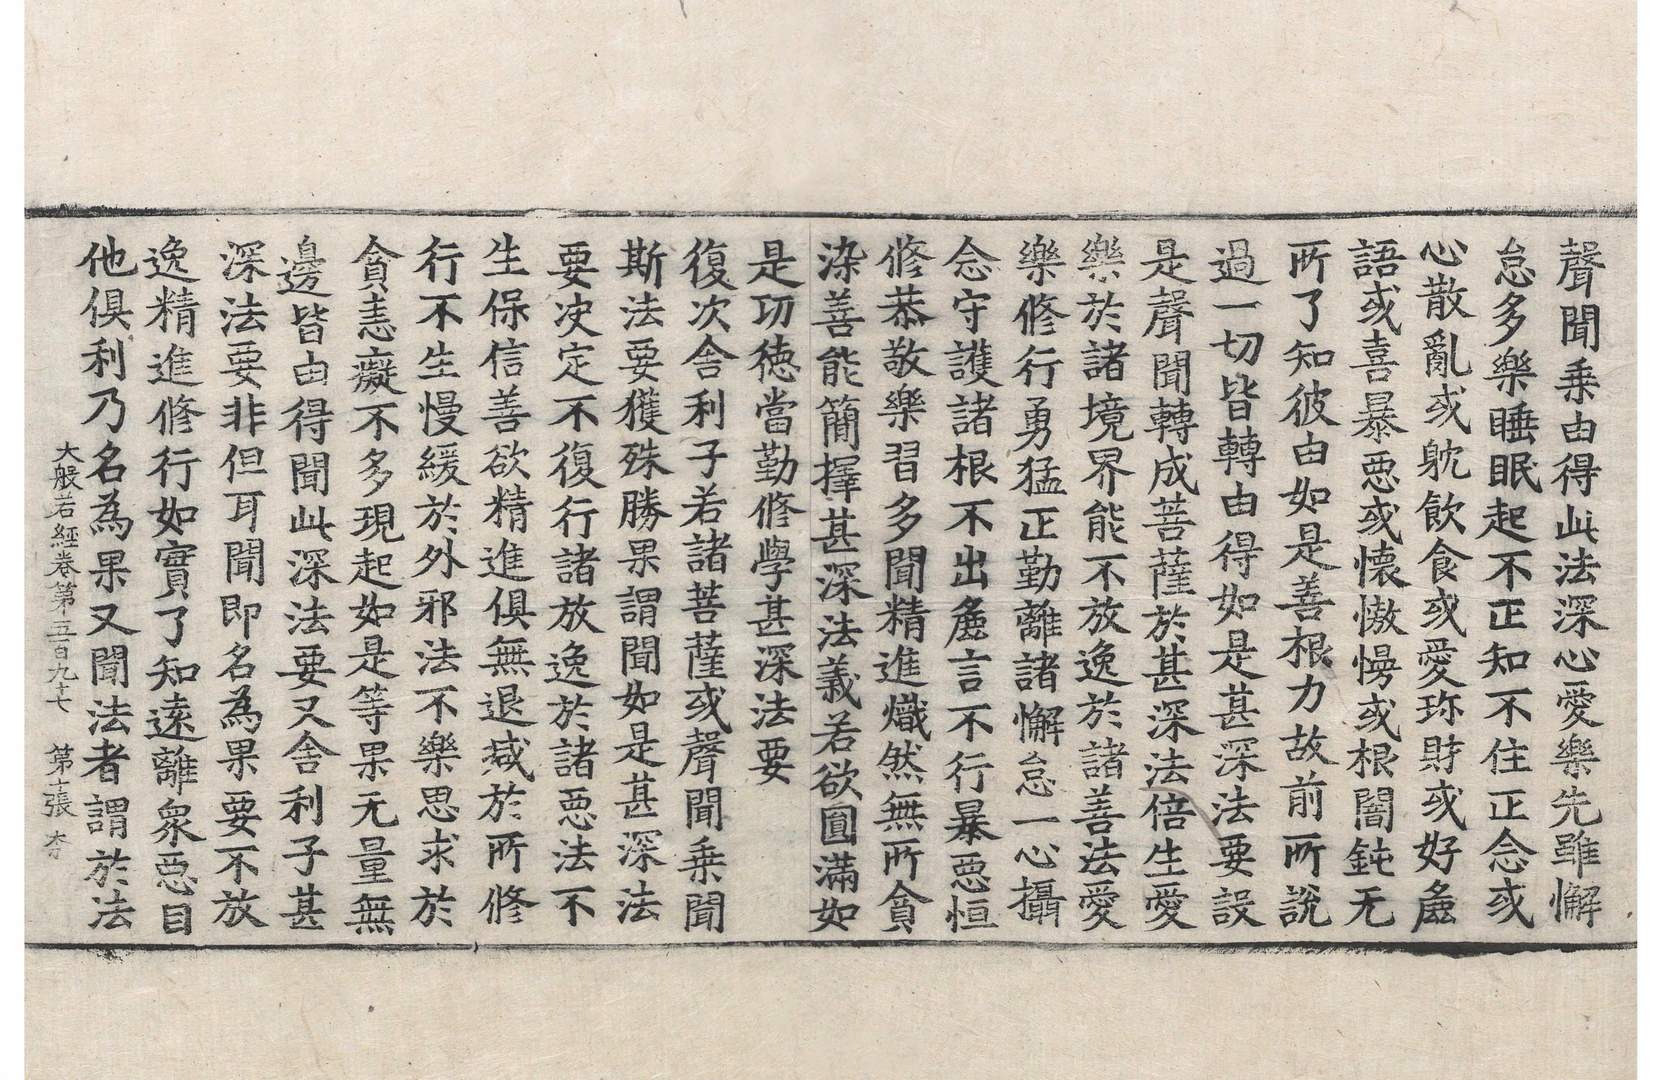 聲聞乗由得此法深心愛樂先雖懈
怠多樂睡眠起不正知不住正念或
心散亂或躭飲食或愛珎財或好麁
語或喜暴惡或懷憿愕或根闇鈍无
所了知彼由如是善根力故前所說
過一切皆轉由得如是甚深法要設
是聲聞轉成菩薩於甚深法倍生愛
樂於諸境界能不放逸於諸善法愛
樂修行勇猛正勤離諸懈怠一心攝
念守護諸根不出麁言不行暴惡恒
修恭敬樂習多聞精進熾然無所貪
染善能簡擇甚深法義若欲圓滿如
是功徳當勤修學甚深法要
復次舍利子若諸菩薩或聲聞乗聞
斯法要獲殊勝果謂聞如是甚深法
要决定不復行諸放逸於諸惡法不
生保信善欲精進俱無退減於所修
行不生慢緩於外邪法不樂思求於
貪恚癡不多現起如是等果无量無
邊皆由得聞此深法要又舍利子甚
深法要非但耳聞即名為果要不放
逸精進修行如實了知逺離衆惡自
他俱利乃名為果又聞法者謂於法
大般若經卷第五百九十七　第十張　李